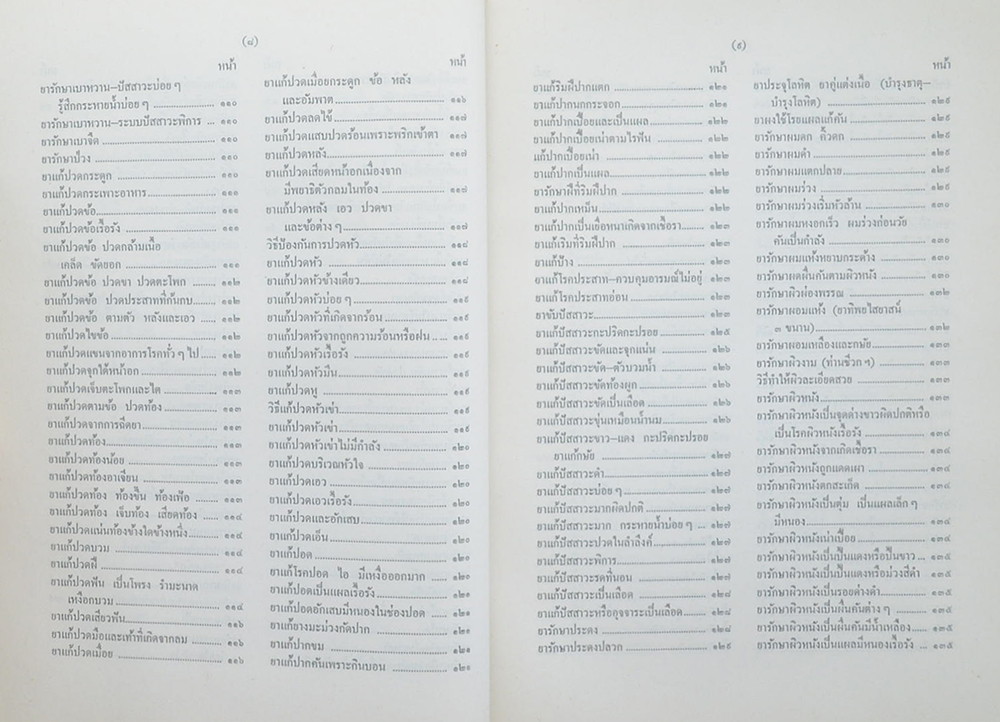 (๘)
หน้า
ยารักษาเบาหวาน–ปัสสาวะบ่อย ๆ
รู้สึกกระหายน้ำบ่อย ๆ ๑๑๐
ยารักษาเบาหวาน–ระบบปัสสาวะพิการ ๑๑๐
ยารักษาเบาจืด ๑๑๐
ยารักษาป่วง ๑๑๐
ยาแก้ปวดกระดูก ๑๑๐
ยาแก้ปวดกระเพาะอาหาร ๑๑๐
ยาแก้ปวดข้อ ๑๑๑
ยาแก้ปวดข้อเรื้อรัง ๑๑๑
ยาแก้ปวดข้อ ปวดกล้ามเนื้อ
เคล็ด ขัดยอก ๑๑๑
ยาแก้ปวดข้อ ปวดขา ปวดตะโพก ๑๑๒
ยาแก้ปวดข้อ ปวดประสาทที่ก้นกบ ๑๑๒
ยาแก้ปวดข้อ ตามตัว หลังและเอว ๑๑๒
ยาแก้ปวดไขข้อ ๑๑๒
ยาแก้ปวดแขนจากอาการโรคทั่ว ๆ ไป ๑๑๒
ยาแก้ปวดจุกใต้หน้าอก ๑๑๒
ยาแก้ปวดเจ็บตะโพกและไต ๑๑๓
ยาแก้ปวดตามข้อ ปวดท้อง ๑๑๓
ยาแก้ปวดจากการฉีดยา ๑๑๓
ยาแก้ปวดท้อง ๑๑๓
ยาแก้ปวดท้องน้อย ๑๑๓
ยาแก้ปวดท้องอาเจียน ๑๑๓
ยาแก้ปวดท้อง ท้องขึ้น ท้องเฟ้อ ๑๑๓
ยาแก้ปวดท้อง เจ็บท้อง เสียดท้อง ๑๑๔
ยาแก้ปวดแน่นท้องข้างใดข้างหนึ่ง ๑๑๔
ยาแก้ปวดบวม ๑๑๔
ยาแก้ปวดฝี ๑๑๔
ยาแก้ปวดฟัน เป็นโพรง รำมะนาด
เหงือกบวม ๑๑๔
ยาแก้ปวดเสียวฟัน ๑๑๖
ยาแก้ปวดมือและเท้าที่เกิดจากลม ๑๑๖
ยาแก้ปวดเมื่อย ๑๑๖
หน้า
ยาแก้ปวดเมื่อยกระดูก ข้อ หลัง
และอัมพาต ๑๑๖
ยาแก้ปวดลดไข้ ๑๑๗
ยาแก้ปวดแสบปวดร้อนเพราะพริกเข้าตา ๑๑๗
ยาแก้ปวดหลัง ๑๑๗
ยาแก้ปวดเสียดหน้าอกเนื่องจาก
มีพยาธิตัวกลมในท้อง ๑๑๘
ยาแก้ปวดหลัง เอว ปวดขา
และข้อต่าง ๆ ๑๐๗
วิธีป้องกันการปวดหัว ๑๑๘
ยาแก้ปวดหัว ๑๑๘
ยาแก้ปวดหัวข้างเดียว ๑๑๘
ยาแก้ปวดหัวบ่อย ๆ ๑๑๙
ยาแก้ปวดหัวที่เกิดจากร้อน ๑๑๙
ยาแก้ปวดหัวจากถูกความร้อนหรือฝน ๑๑๙
ยาแก้ปวดหัวเรื้อรัง ๑๑๙
ยาแก้ปวดหัวมึน ๑๑๙
ยาแก้ปวดหู ๑๑๙
วิธีแก้ปวดหัวเข่า ๑๑๙
ยาแก้ปวดหัวเข่า ๑๑๙
ยาแก้ปวดหัวเข่าไม่มีกำลัง ๑๒๐
ยาแก้ปวดบริเวณหัวใจ ๑๒๐
ยาแก้ปวดเอว ๑๒๐
ยาแก้ปวดเอวเรื้อรัง ๑๒๐
ยาแก้ปวดและอักเสบ ๑๒๐
ยาแก้ปวดเอ็น ๑๒๐
ยาแก้ปอด ๑๒๐
ยาแก้โรคปอด ไอ มีเหงื่อออกมาก ๑๒๐
ยาแก้ปอดเป็นแผลเรื้อรัง ๑๒๐
ยาแก้ปอดอักเสบมีหนองในช่องปอด ๑๒๑
ยาแก้ยางมะม่วงกัดปาก ๑๒๑
ยาแก้ปากขม ๑๒๑
ยาแก้ปากคันเพราะกินบอน ๑๒๑
(๙)
หน้า
ยาแก้ริมฝีปากแตก ๑๒๑
ยาแก้ปากนกกระจอก ๑๒๑
ยาแก้ปากเปื่อยและเป็นแผล ๑๒๒
ยาแก้ปากเปื่อยเน่าตามไรฟัน ๑๒๒
แก้ปากเปื่อยเน่า ๑๒๒
ยาแก้ปากเป็นแผล ๑๒๒
ยารักษาฝีที่ริมฝีปาก ๑๒๒
ยาแก้ปากเหม็น ๑๒๒
ยาแก้ปากเป็นเยื่อหนาเกิดจากเชื้อรา ๑๒๓
ยาแก้เริมที่ริมฝีปาก ๑๒๓
ยาแก้ป้าง ๑๒๓
ยาแก้โรคประสาท–ควบคุมอารมณ์ไม่อยู่ ๑๒๓
ยาแก้โรคประสาทอ่อน ๑๒๓
ยาขับปัสสาวะ ๑๒๓
ยาแก้ปัสสาวะกะปริดกะปรอย ๑๒๕
ยาแก้ปัสสาวะขัดและจุกแน่น ๑๒๖
ยาแก้ปัสสาวะขัด–ตัวบวมน้ำ ๑๒๖
ยาแก้ปัสสาวะขัดท้องผูก ๑๒๖
ยาแก้ปัสสาวะขัดเป็นเลือด ๑๒๖
ยาแก้ปัสสาวะขุ่นเหมือนน้ำนม ๑๒๖
ยาแก้ปัสสาวะขาว–แดง กะปริดกะปรอย
ยาแก้กษัย ๑๒๗
ยาแก้ปัสสาวะดำ ๑๒๗
ยาแก้ปัสสาวะบ่อย ๆ ๑๒๗
ยาแก้ปัสสาวะมากผิดปกติ ๑๒๗
ยาแก้ปัสสาวะมาก กระหายน้ำบ่อย ๆ ๑๒๗
ยาแก้ปัสสาวะปวดในลำลึงค์ ๑๒๗
ยาแก้ปัสสาวะพิการ ๑๒๗
ยาแก้ปัสสาวะรดที่นอน ๑๒๗
ยาแก้ปัสสาวะเป็นเลือด ๑๒๘
ยาแก้ปัสสาวะหรืออุจจาระเป็นเลือด ๑๒๘
ยารักษาประดง ๑๒๘
ยารักษาประดงปลวก ๑๒๙
หน้า
ยาประจุโลหิต ยาคู่แต่งเนื้อ (บำรุงธาตุ–
บำรุงโลหิต) ๑๒๙
ยาผงใช้โรยแผลแก้คัน ๑๒๙
ยารักษาผมดก คิ้วดก ๑๒๙
ยารักษาผมดำ ๑๒๙
ยารักษาผมแตกปลาย ๑๒๙
ยารักษาผมร่วง ๑๒๙
ยารักษาผมร่วงเริ่มหัวล้าน ๑๓๐
ยารักษาผมหงอกเร็ว ผมร่วงก่อนวัย
คันเป็นกำลัง ๑๓๐
ยารักษาผมแห้งหยาบกระด้าง ๑๓๐
ยารักษาผดผื่นคันตามผิวหนัง ๑๓๐
ยารักษาผิวผ่องพรรณ ๑๓๒
ยารักษาผอมแห้ง (อาทิพยไสยาสน์
๓ ขนาน) ๑๓๒
ยารักษาผอมเหลืองและกษัย ๑๓๓
ยารักษาผิวงาม (ท่านชีวก ฯ) ๑๓๓
วิธีทำให้ผิวละเอียดสวย ๑๓๓
ยารักษาผิวหนัง ๑๓๓
ยารักษาผิวหนังเป็นจุดด่างขาวผิดปกติหรือ
เป็นโรคผิวหนังเรื้อรัง ๑๓๔
ยารักษาผิวหนังจากเกิดเชื้อรา ๑๓๔
ยารักษาผิวหนังถูกแดดเผา ๑๓๔
ยารักษาผิวหนังตกสะเก็ด ๑๓๔
ยารักษาผิวหนังเป็นตุ่ม เป็นแผลเล็ก ๆ
มีหนอง ๑๓๔
ยารักษาผิวหนังเน่าเปื่อย ๑๓๔
ยารักษาผิวหนังเป็นปื้นแดงหรือปื้นขาว ๑๓๕
ยารักษาผิวหนังเป็นปื้นแดงหรือม่วงสีดำ ๑๓๕
ยารักษาผิวหนังเป็นรอยด่างดำ ๑๓๕
ยารักษาผิวหนังเป็นผื่นคันต่าง ๆ ๑๓๕
ยารักษาผิวหนังเป็นผื่นคันมีน้ำเหลือง ๑๓๕
ยารักษาผิวหนังเป็นแผลมีหนองเรื้อรัง ๑๓๕